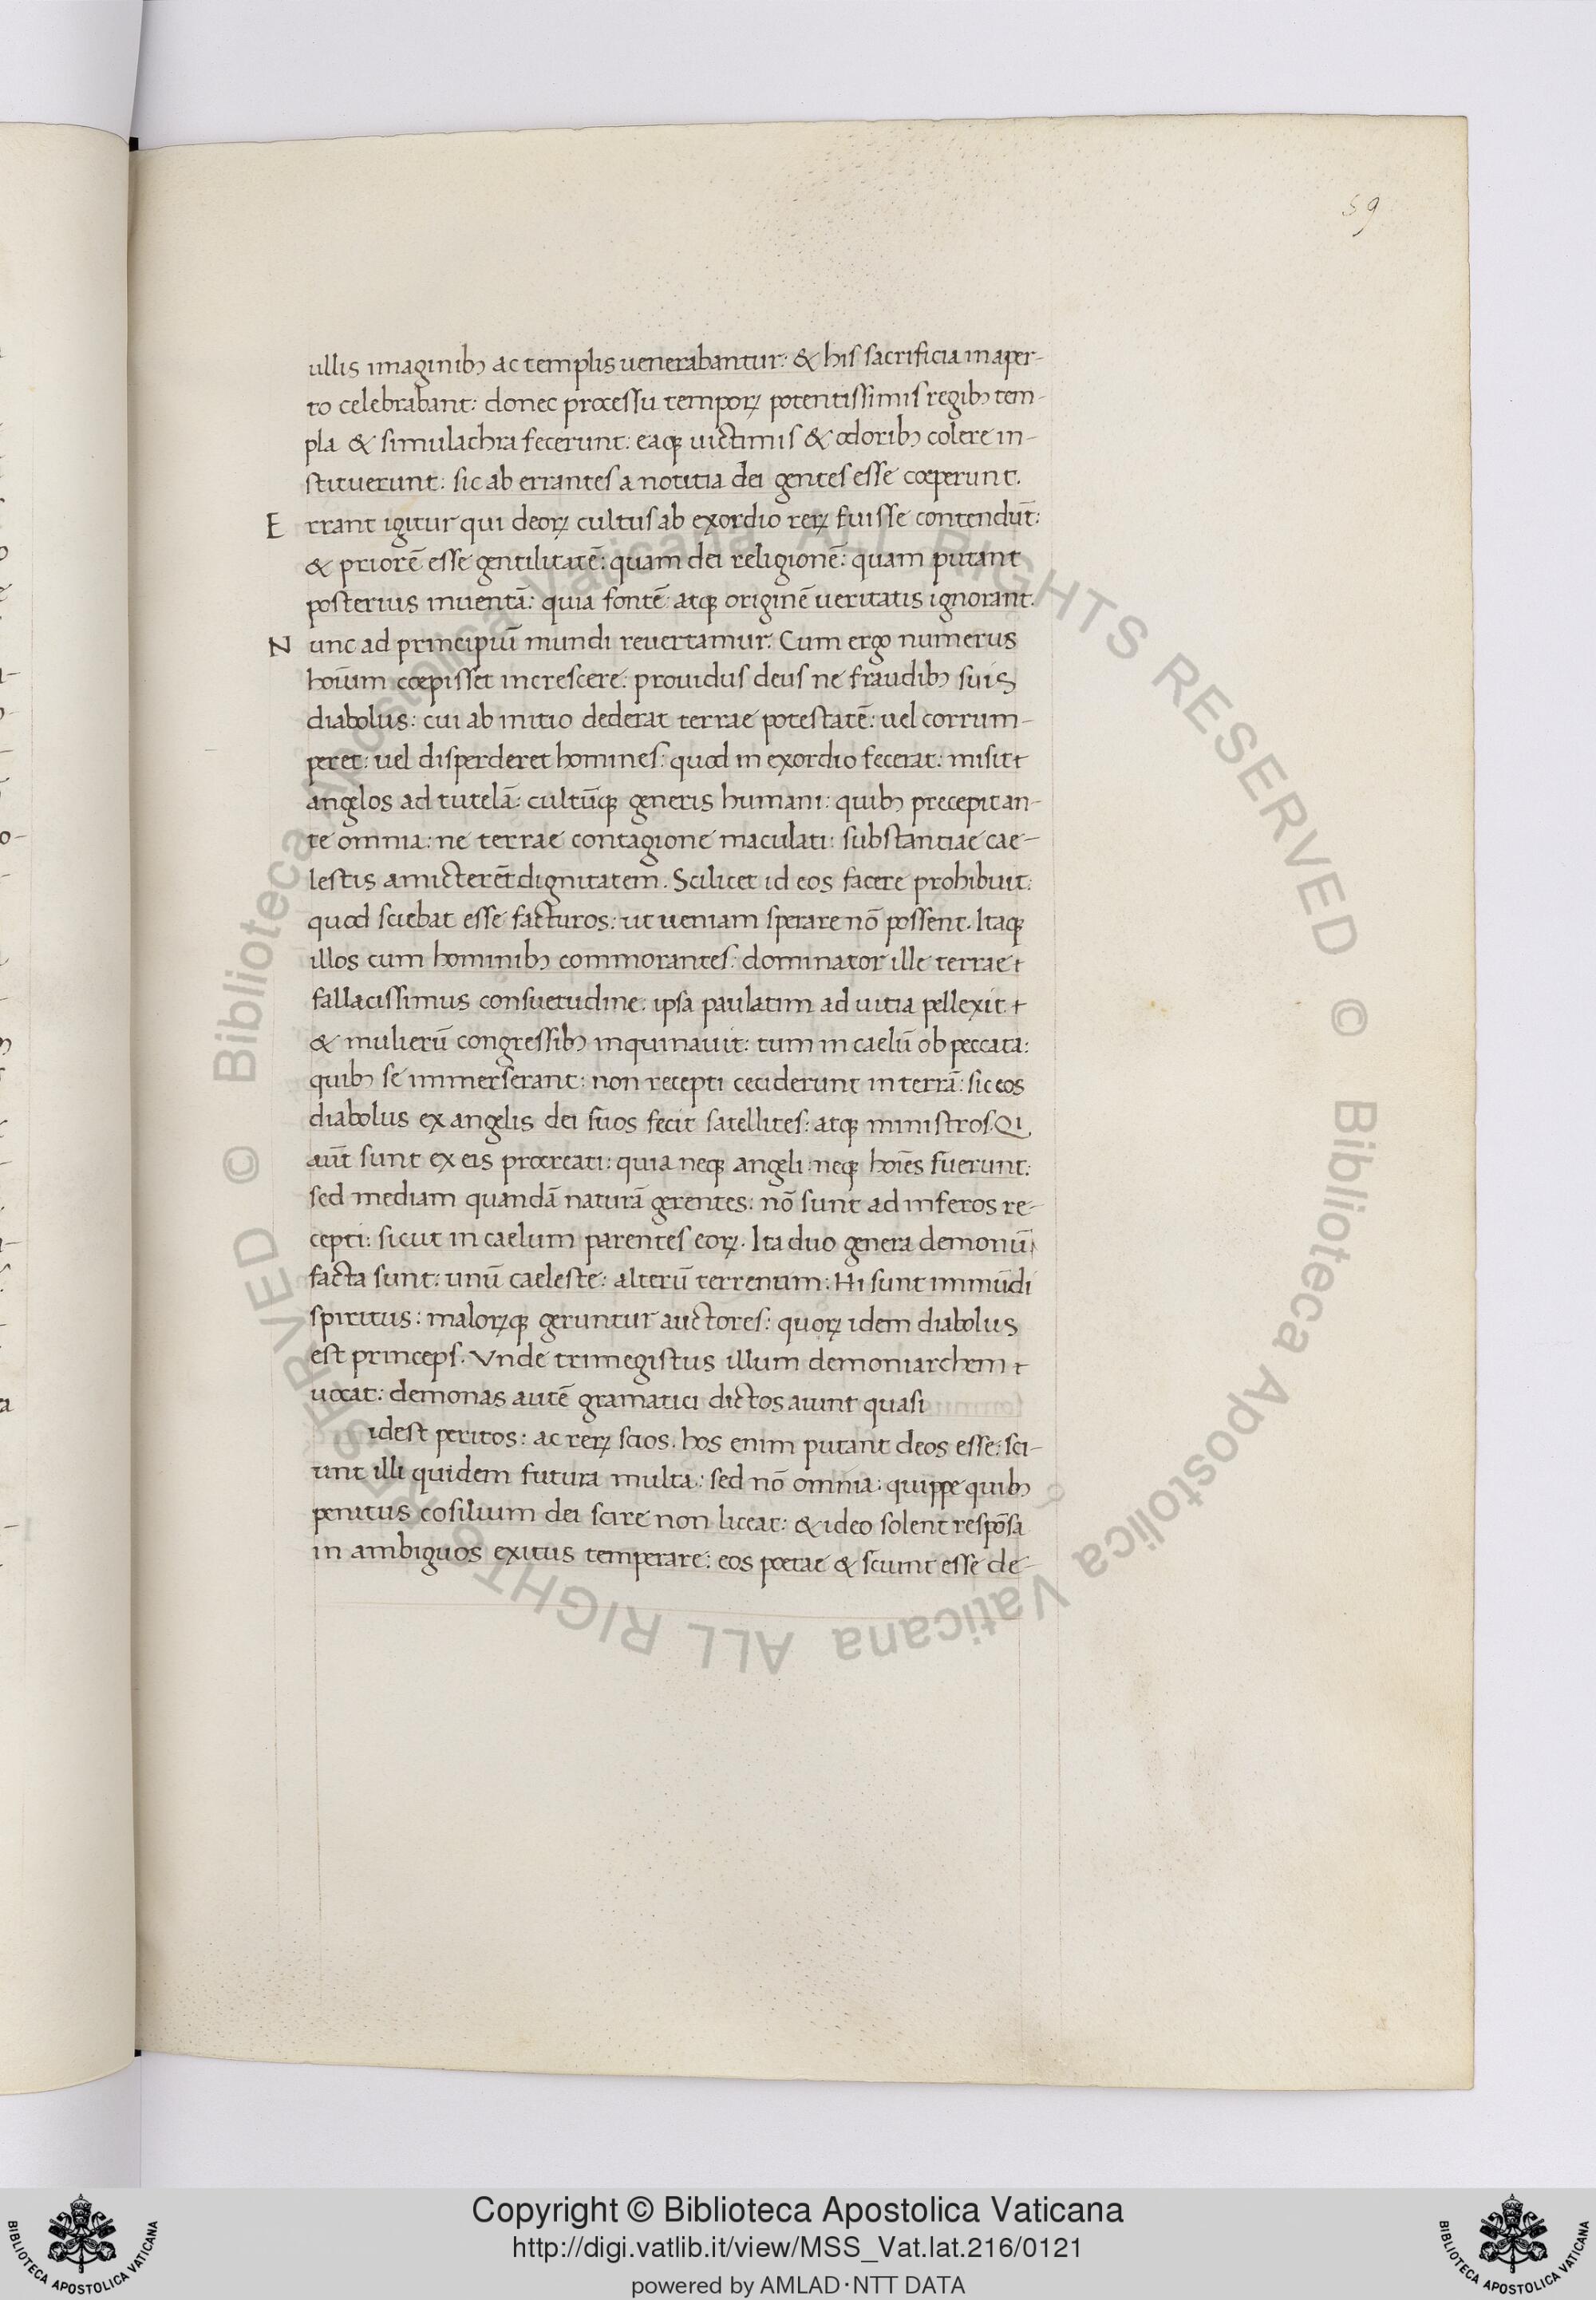 59
ullis imaginibꝫ ac templis uenerabantur: & his sacrificia in aper-
to celebrabant: donec processu temporꝝ potentissimis regibꝫ tem-
pla & simulachra fecerunt: eaqꝫ uictimis & odoribꝫ colere in-
stituerunt: sic ab errantes a notitia dei gentes esse cœperunt.
E rrant igitur qui deorꝝ cultus ab exordio rerꝝ fuisse contendūt:
& priorē esse gentilitatē: quam dei religionē: quam putant
posterius inuentā: quia fontē atqꝫ originē ueritatis ignorant.
N unc ad principiū mundi reuertamur. Cum ergo numerus
hoīum cœpisset increscere: prouidus deus ne fraudibꝫ suis
diabolus: cui ab initio dederat terrae potestatē: uel corrum-
peret: uel disperderet homines: quod in exordio fecerat: misit
angelos ad tutelā: cultūqꝫ generis humani: quibꝫ precepit an-
te omnia: ne terrae contagione maculati: substantiae cae-
lestis amicterēt dignitatem. Scilicet id eos facere prohibuit:
quod sciebat esse facturos: ut ueniam sperare nō possent. Itaqꝫ
illos cum hominibꝫ commorantes: dominator ille terrae
fallacissimus consuetudine: ipsa paulatim ad uitia pellexit:
& mulierū congressibꝫ inquinauit: tum in caelū ob peccata:
quibꝫ se immerserant: non recepti ceciderunt in terrā: sic eos
diabolus ex angelis dei suos fecit satellites: atqꝫ ministros. Qi
aūt sunt ex eis procreati: quia neqꝫ angeli: neqꝫ hoīes fuerunt:
sed mediam quandā naturā gerentes: nō sunt ad inferos re-
cepti: sicut in caelum parentes eorꝝ. Ita duo genera demonū
facta sunt: unū caeleste: alterū terrenum: Hi sunt immūdi
spiritus: malorꝝqꝫ geruntur auctores: quorꝝ idem diabolus
est princeps. Vnde trimegistus illum demoniarchem
uocat: demonas autē gramatici dictos aiunt quasi
idest peritos: ac rerꝝ scios. hos enim putant deos esse: sci-
unt illi quidem futura multa: sed nō omnia: quippe quibꝫ
penitus cosilium dei scire non liceat: & ideo solent respōsa
in ambiguos exitus temperare: eos poetae & sciunt esse de-
© Biblioteca Apostolica Vaticana ALL RIGHTS RESERVED © Biblioteca Apostolica Vaticana ALL RIGHTS RESERVED
Copyright © Biblioteca Apostolica Vaticana
http://digi.vatlib.it/view/MSS_Vat.lat.216/0121
powered by AMLAD·NTT DATA
BIBLIOTECA APOSTOLICA VATICANA
BIBLIOTECA APOSTOLICA VATICANA